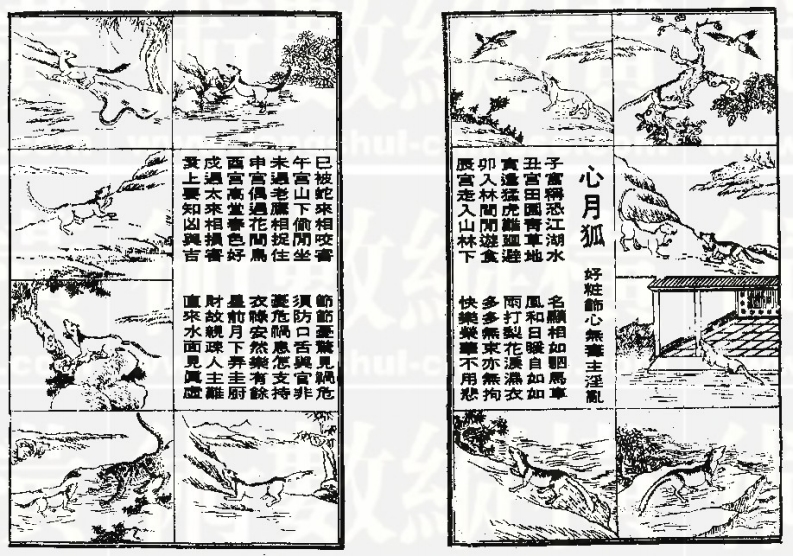 心月狐
好粧飾心無毒主淫亂
子宮稱恐江湖水 名顯相如駟馬車
丑宮田園青草地 風和日暖自如如
寅逢猛虎難迴避 雨打梨花淚濕衣
卯入林間閒遊食 多多無束亦無拘
辰宮走入山林下 快樂榮華不用悲
巳被蛇來相咬害 節節憂驚見禍危
午宮山下偷閒坐 須防口舌與官非
未遇老鷹相捉住 憂危禍患怎支持
申宮偶遇花間鳥 衣祿安然樂有餘
酉宮高堂春色好 星前月下弄圭廚
戌遇太來相損害 財故親疎人主離
亥上要知凶與吉 直來水面見真虛